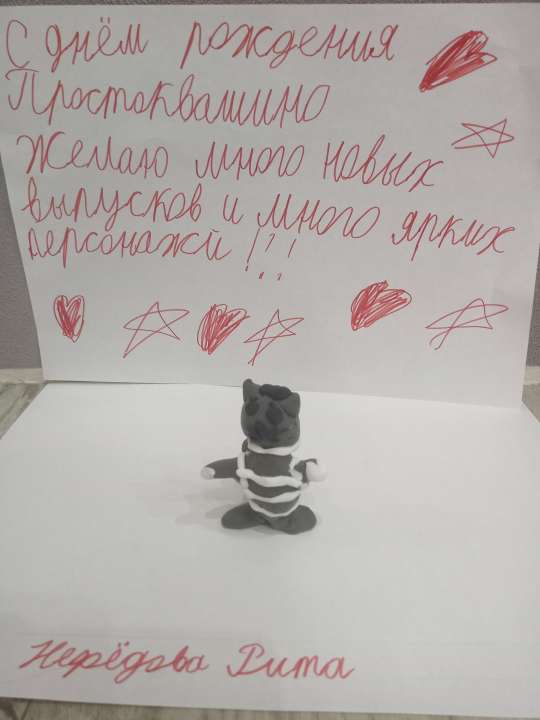 С днём рождения
Простоквашино
Желаю много новых
выпусков и много ярких
персонажй !!!
Нефёдова Рита